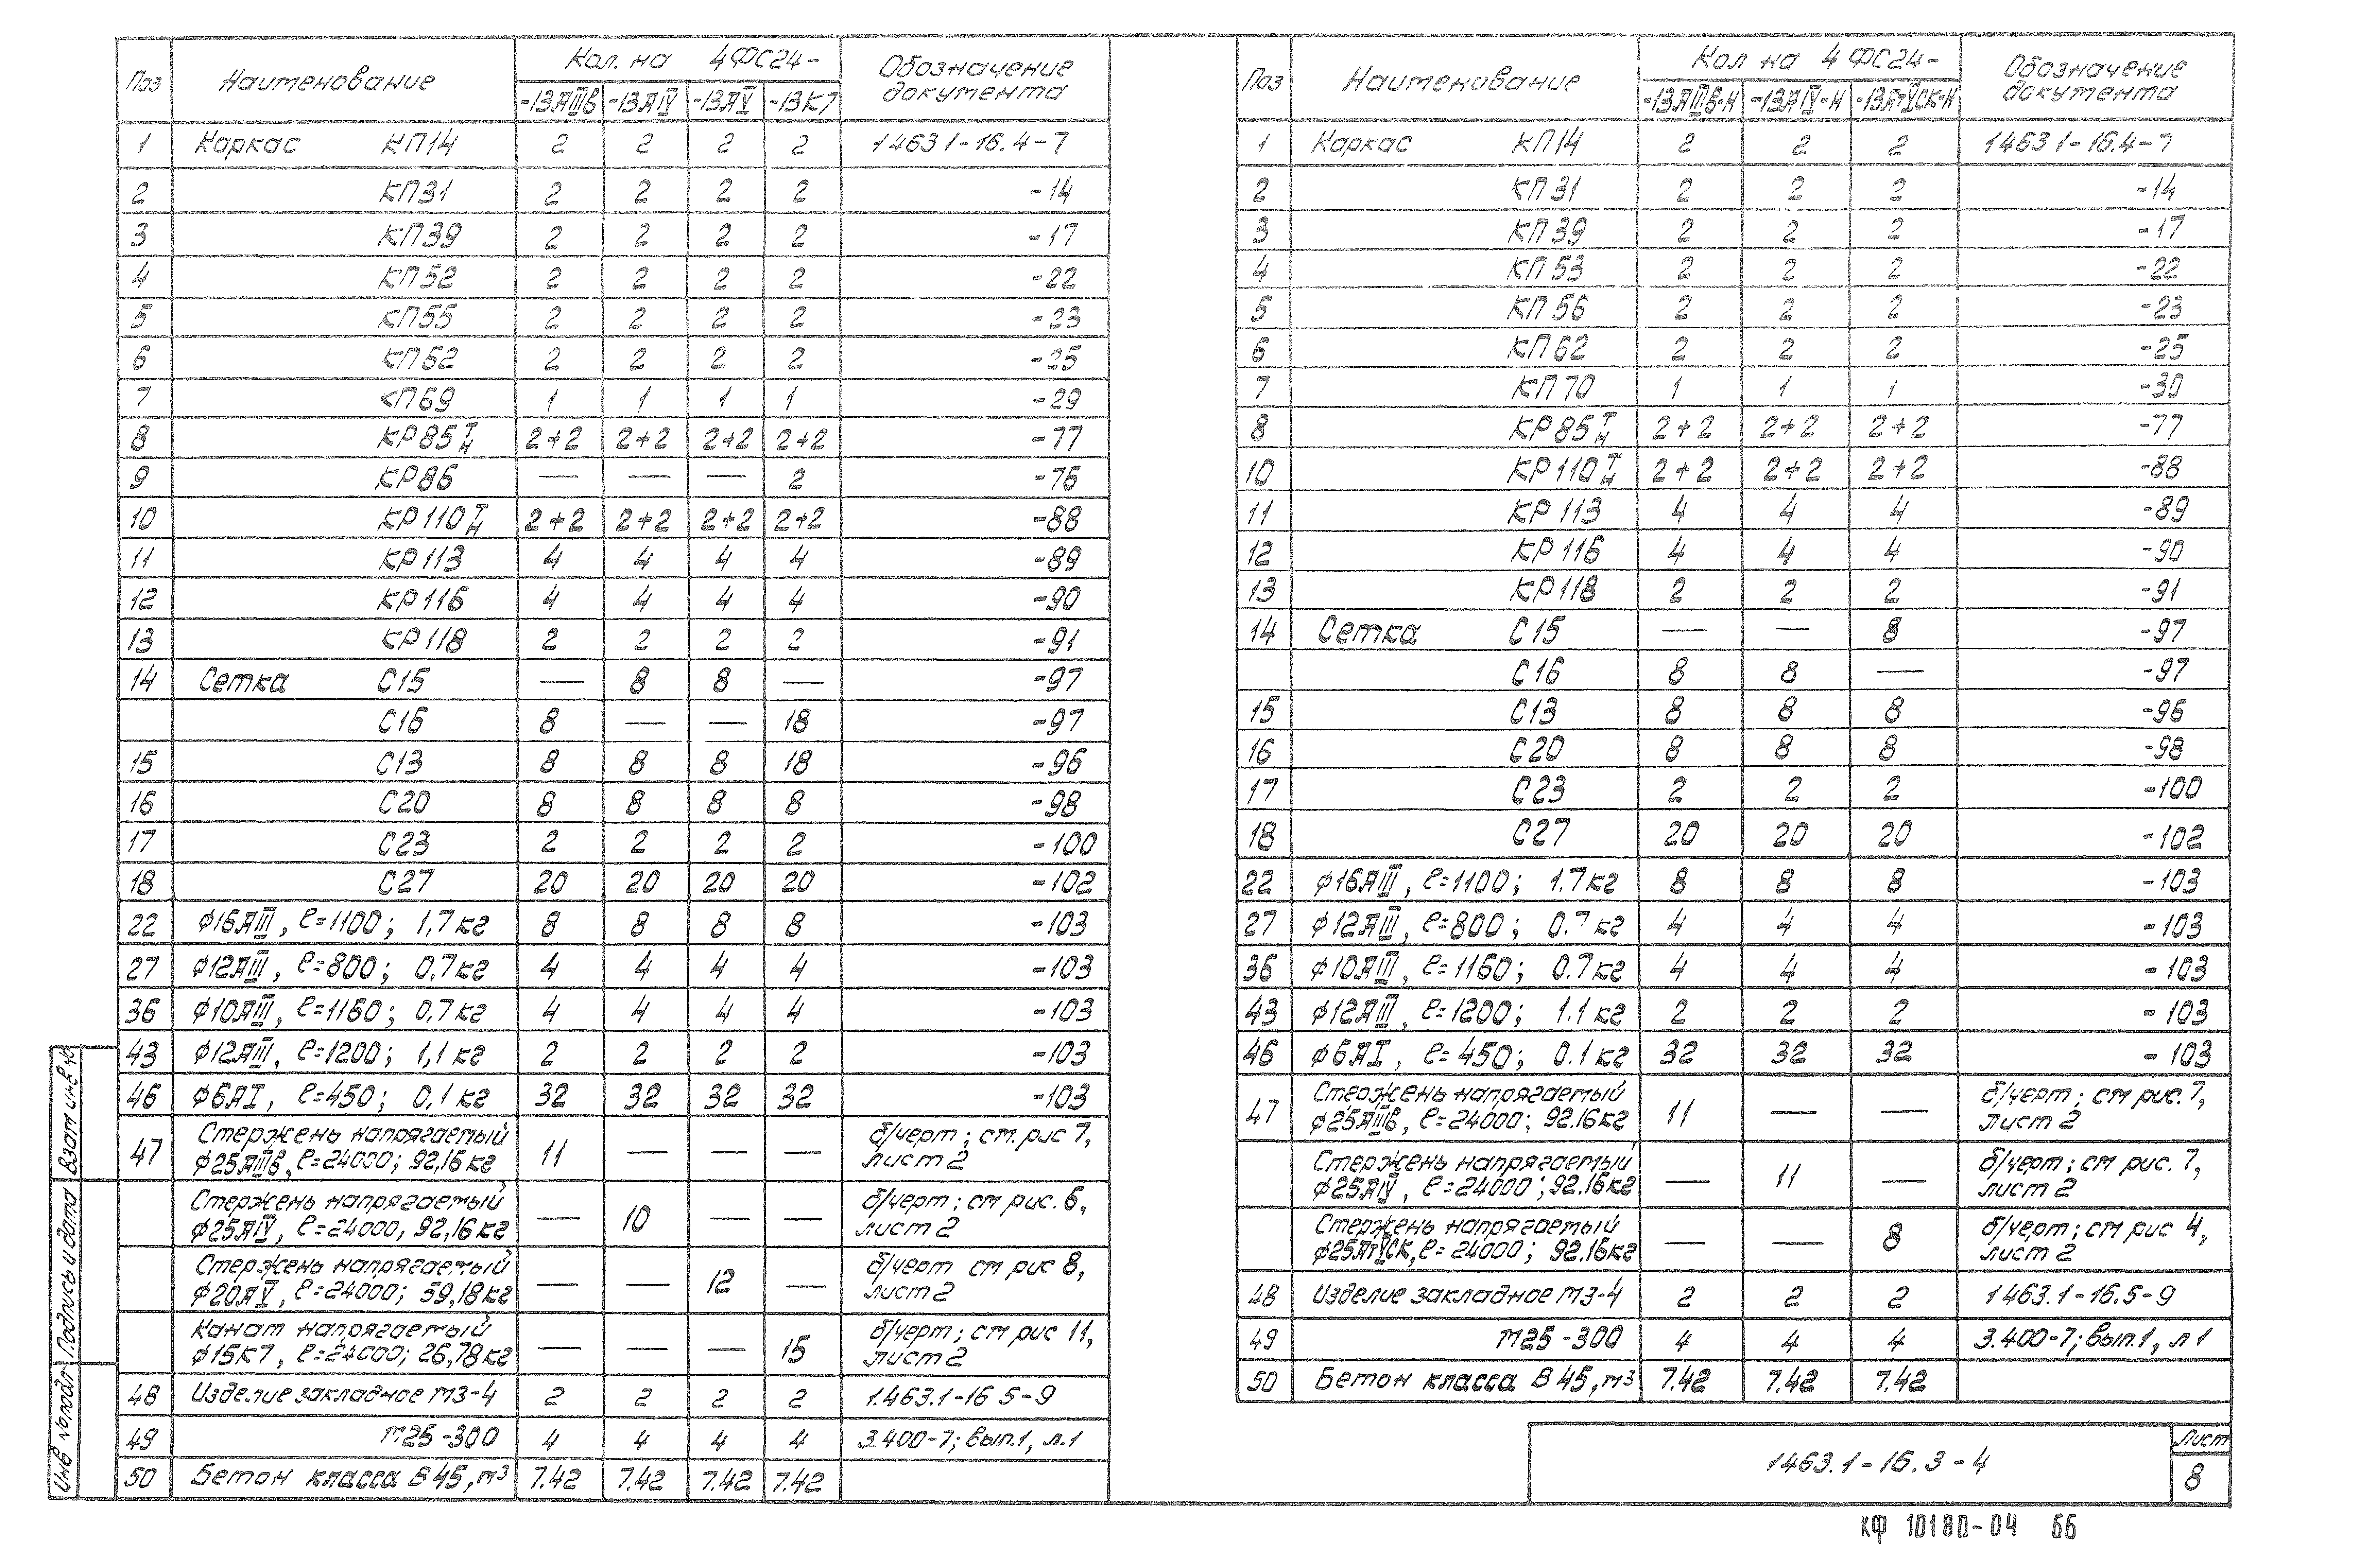 Поз Наименование Кол. на 4ФС24- Обозначение документа
-13АIIIв -13АIV -13АV -13К7
1 Каркас КП14 2 2 2 2 1463 1-16.4-7
2 КП31 2 2 2 2 -14
3 КП39 2 2 2 2 -17
4 КП52 2 2 2 2 -22
5 КП55 2 2 2 2 -23
6 КП62 2 2 2 2 -25
7 КП69 1 1 1 1 -29
8 КР85 Т Н 2+2 2+2 2+2 2+2 -77
9 КР86 — — — 2 -76
10 КР110 Т Н 2+2 2+2 2+2 2+2 -88
11 КР113 4 4 4 4 -89
12 КР116 4 4 4 4 -90
13 КР118 2 2 2 2 -91
14 Сетка С15 — 8 8 — -97
С16 8 — — 18 -97
15 С13 8 8 8 18 -96
16 С20 8 8 8 8 -98
17 С23 2 2 2 2 -100
18 С27 20 20 20 20 -102
22 ф16АIII, ℓ=1100; 1,7кг 8 8 8 8 -103
27 ф12АIII, ℓ=800; 0,7кг 4 4 4 4 -103
36 ф10АIII, ℓ=1160; 0,7кг 4 4 4 4 -103
43 ф12АIII, ℓ=1200; 1,1кг 2 2 2 2 -103
46 ф6АI, ℓ=450; 0,1кг 32 32 32 32 -103
47 Стержень напрягаемый ф25АIIIв, ℓ=24000; 92,16кг 11 — — — б/черт; см. рис 7, лист 2
Стержень напрягаемый ф25АIV, ℓ=24000, 92,16кг — 10 — — б/черт; см рис. 6, лист 2
Стержень напрягаемый ф20АV, ℓ=24000; 59,18кг — — 12 — б/черт см рис 8, лист 2
Канат напрягаемый ф15К7, ℓ=24000; 26,78кг — — — 15 б/черт; см рис 11, лист 2
48 Изделие закладное М3-4 2 2 2 2 1.463.1-16 5-9
49 М25-300 4 4 4 4 3.400-7; вып.1, л.1
50 Бетон класса В45, м3 7.42 7.42 7.42 7.42
Поз Наименование Кол на 4ФС24- Обозначение документа
-13АIIIв-Н -13АIV-Н -13АтVСК-Н
1 Каркас КП14 2 2 2 1463 1-16.4-7
2 КП31 2 2 2 -14
3 КП39 2 2 2 -17
4 КП53 2 2 2 -22
5 КП56 2 2 2 -23
6 КП62 2 2 2 -25
7 КП70 1 1 1 -30
8 КР85 Т Н 2+2 2+2 2+2 -77
10 КР110 Т Н 2+2 2+2 2+2 -88
11 КР113 4 4 4 -89
12 КР116 4 4 4 -90
13 КР118 2 2 2 -91
14 Сетка С15 — — 8 -97
С16 8 8 — -97
15 С13 8 8 8 -96
16 С20 8 8 8 -98
17 С23 2 2 2 -100
18 С27 20 20 20 -102
22 ф16АIII, ℓ=1100; 1.7кг 8 8 8 -103
27 ф12АIII, ℓ=800; 0.7кг 4 4 4 -103
36 ф10АIII, ℓ=1160; 0.7кг 4 4 4 -103
43 ф12АIII, ℓ=1200; 1.1кг 2 2 2 -103
46 ф6АI, ℓ=450; 0.1кг 32 32 32 -103
47 Стержень напрягаемый ф25АIIIв, ℓ=24000; 92.16кг 11 — — б/черт; см рис. 7, лист 2
Стержень напрягаемый ф25АIV, ℓ=24000; 92.16кг — 11 — б/черт; см рис. 7, лист 2
Стержень напрягаемый ф25АтVСК, ℓ=24000; 92.16кг — — 8 б/черт; см рис 4, лист 2
48 Изделие закладное М3-4 2 2 2 1463.1-16.5-9
49 М25-300 4 4 4 3.400-7; вып.1, л 1
50 Бетон класса В45, м3 7.42 7.42 7.42
1463.1-16.3-4
Лист
8
Инв № подл Подпись и дата Взам инв.№
КФ 10180-04 66